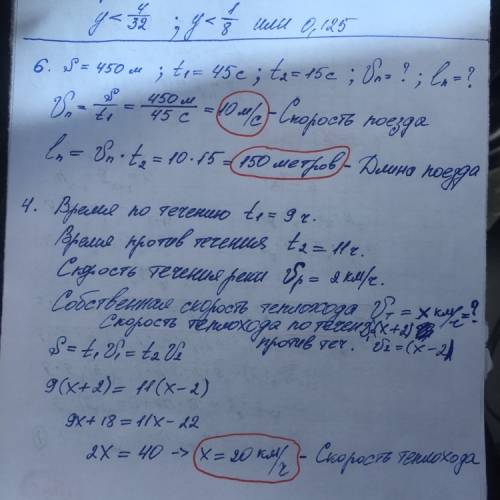 y < 4/32 ; y < 1/8 или 0,125
6. S = 450 м ; t1 = 45 с ; t2 = 15 с ; Vп = ? ; lп = ?
Vп = S/t1 = 450 м/45 с = 10 м/с - Скорость поезда
lп = Vп · t2 = 10 · 15 = 150 метров - Длина поезда
4. Время по течению t1 = 9 ч.
Время против течения t2 = 11 ч.
Скорость течения реки Vр = 2 км/ч.
Собственная скорость теплохода Vт = x км/ч = ?
Скорость теплохода по течен. V1 = (x+2)
S = t1 V1 = t2 V2 против теч. V2 = (x-2)
9(x+2) = 11(x-2)
9x + 18 = 11x - 22
2x = 40 -> x = 20 км/ч - Скорость теплохода